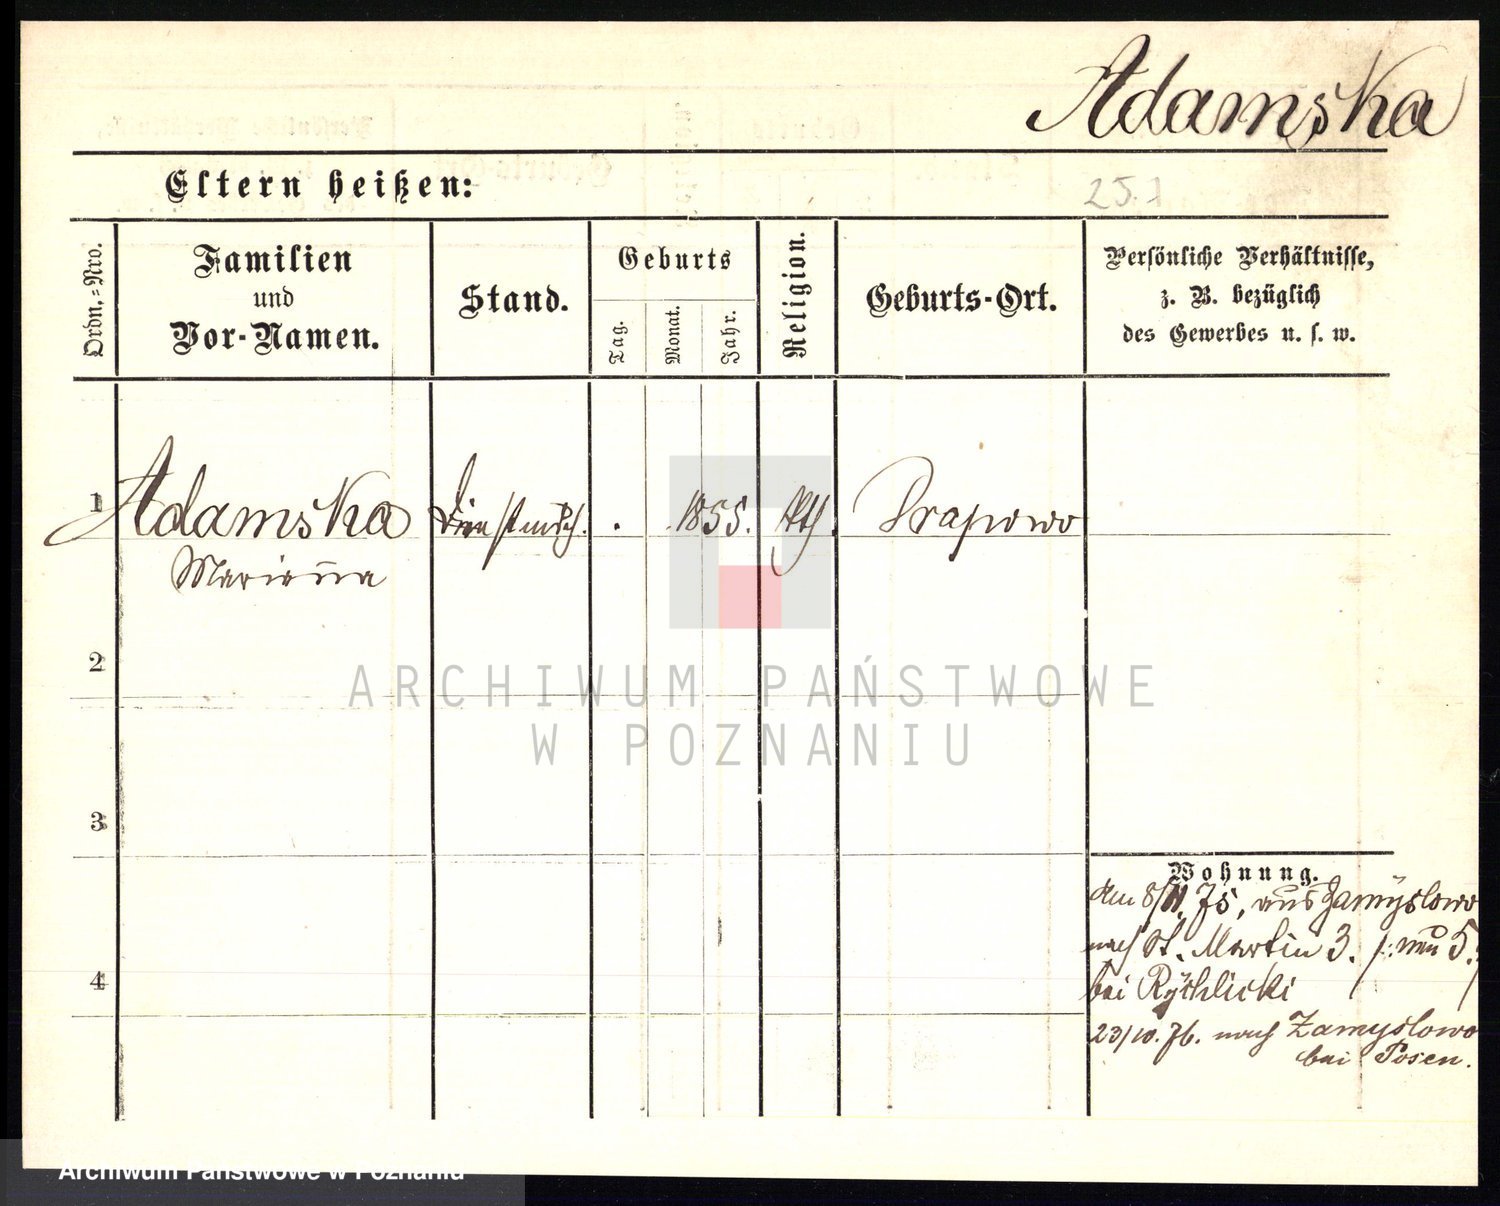 Adamska
Eltern heißen:
25.
Ordn.-Nro.
Familien
und
Vor-Namen.
Stand.
Geburts
Tag.
Monat.
Jahr.
Religion.
Geburts-Ort.
Persönliche Verhältnisse,
z. B. bezüglich
des Gewerbes u. s. w.
1 Adamska Dienstmdch. 1855. kth.
Marianna
2
ARCHIWUM PAŃSTWOWE
W POZNANIU
3
Wohnung.
den 8/11. 75, aus Zamyslowo
nach St. Martin 3. /: nun 5. :/
4
bei Rychlicki
23/10. 76. nach Zamyslowo
bei Posen.
Archiwum Państwowe w Poznaniu